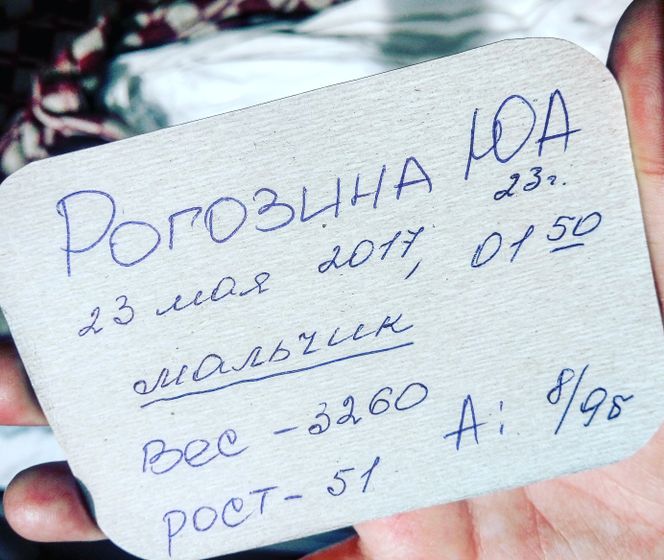 Рогозина ЮА
23г.
23 мая 2017, 01 50
мальчик
Вес - 3260
А: 8/9б
рост - 51